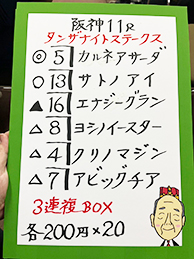 阪神11R
タンザナイトステークス
◎ 5 カルネアサーダ
○ 13 サトノアイ
▲ 16 エナジーグラン
△ 8 ヨシノイースター
△ 4 クリノマジン
△ 7 アビッグチア
3連複BOX
各200円×20